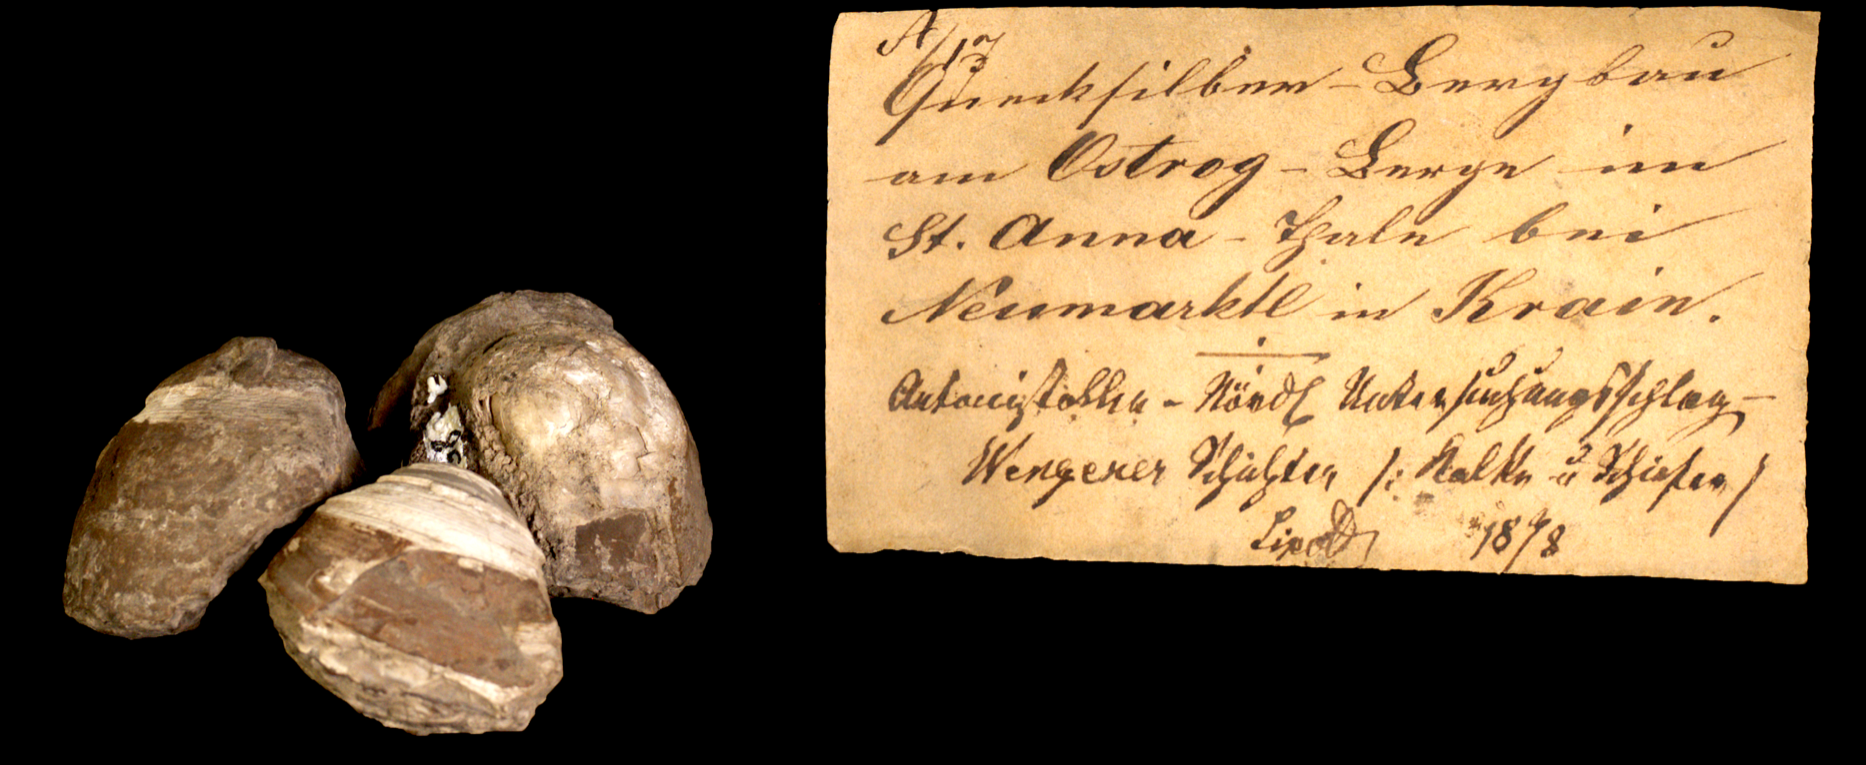 A/13
Quecksilber-Bergbau
am Ostrog-Berge im
St. Anna-Thale bei
Neumarktl in Krain.
Antonistollen - Nördl Untersuchungsschlag -
Wengener Schichten /: Kalke u Schiefer /
Lipold 1878